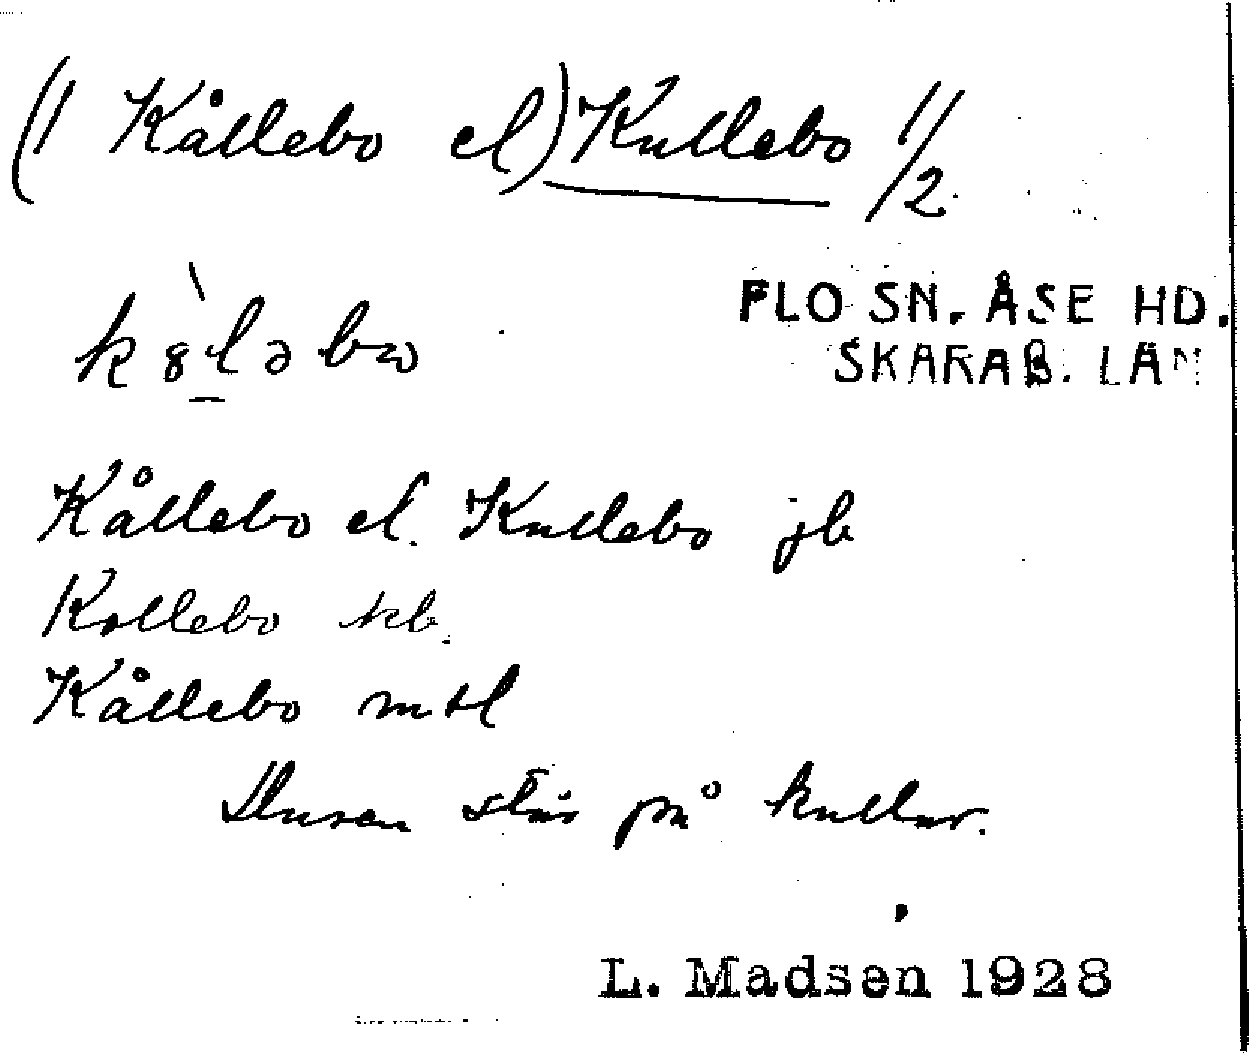 (// Kållebo el) Kullebo //
/2.
FLO SN. ÅSE HD.
SKARAB. LÄN
k8̀lǝbω
Kållebo el. Kullebo jb
Kollebo kb.
Kållebo mtl
Husen står på kullar.
L. Madsen 1928